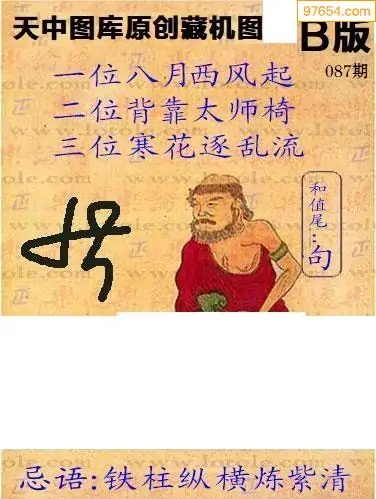 97654.com
天中图库原创藏机图 B版
087期
一位八月西风起
二位背靠太师椅
三位寒花逐乱流
和值尾:句
忌语:铁柱纵横炼紫清